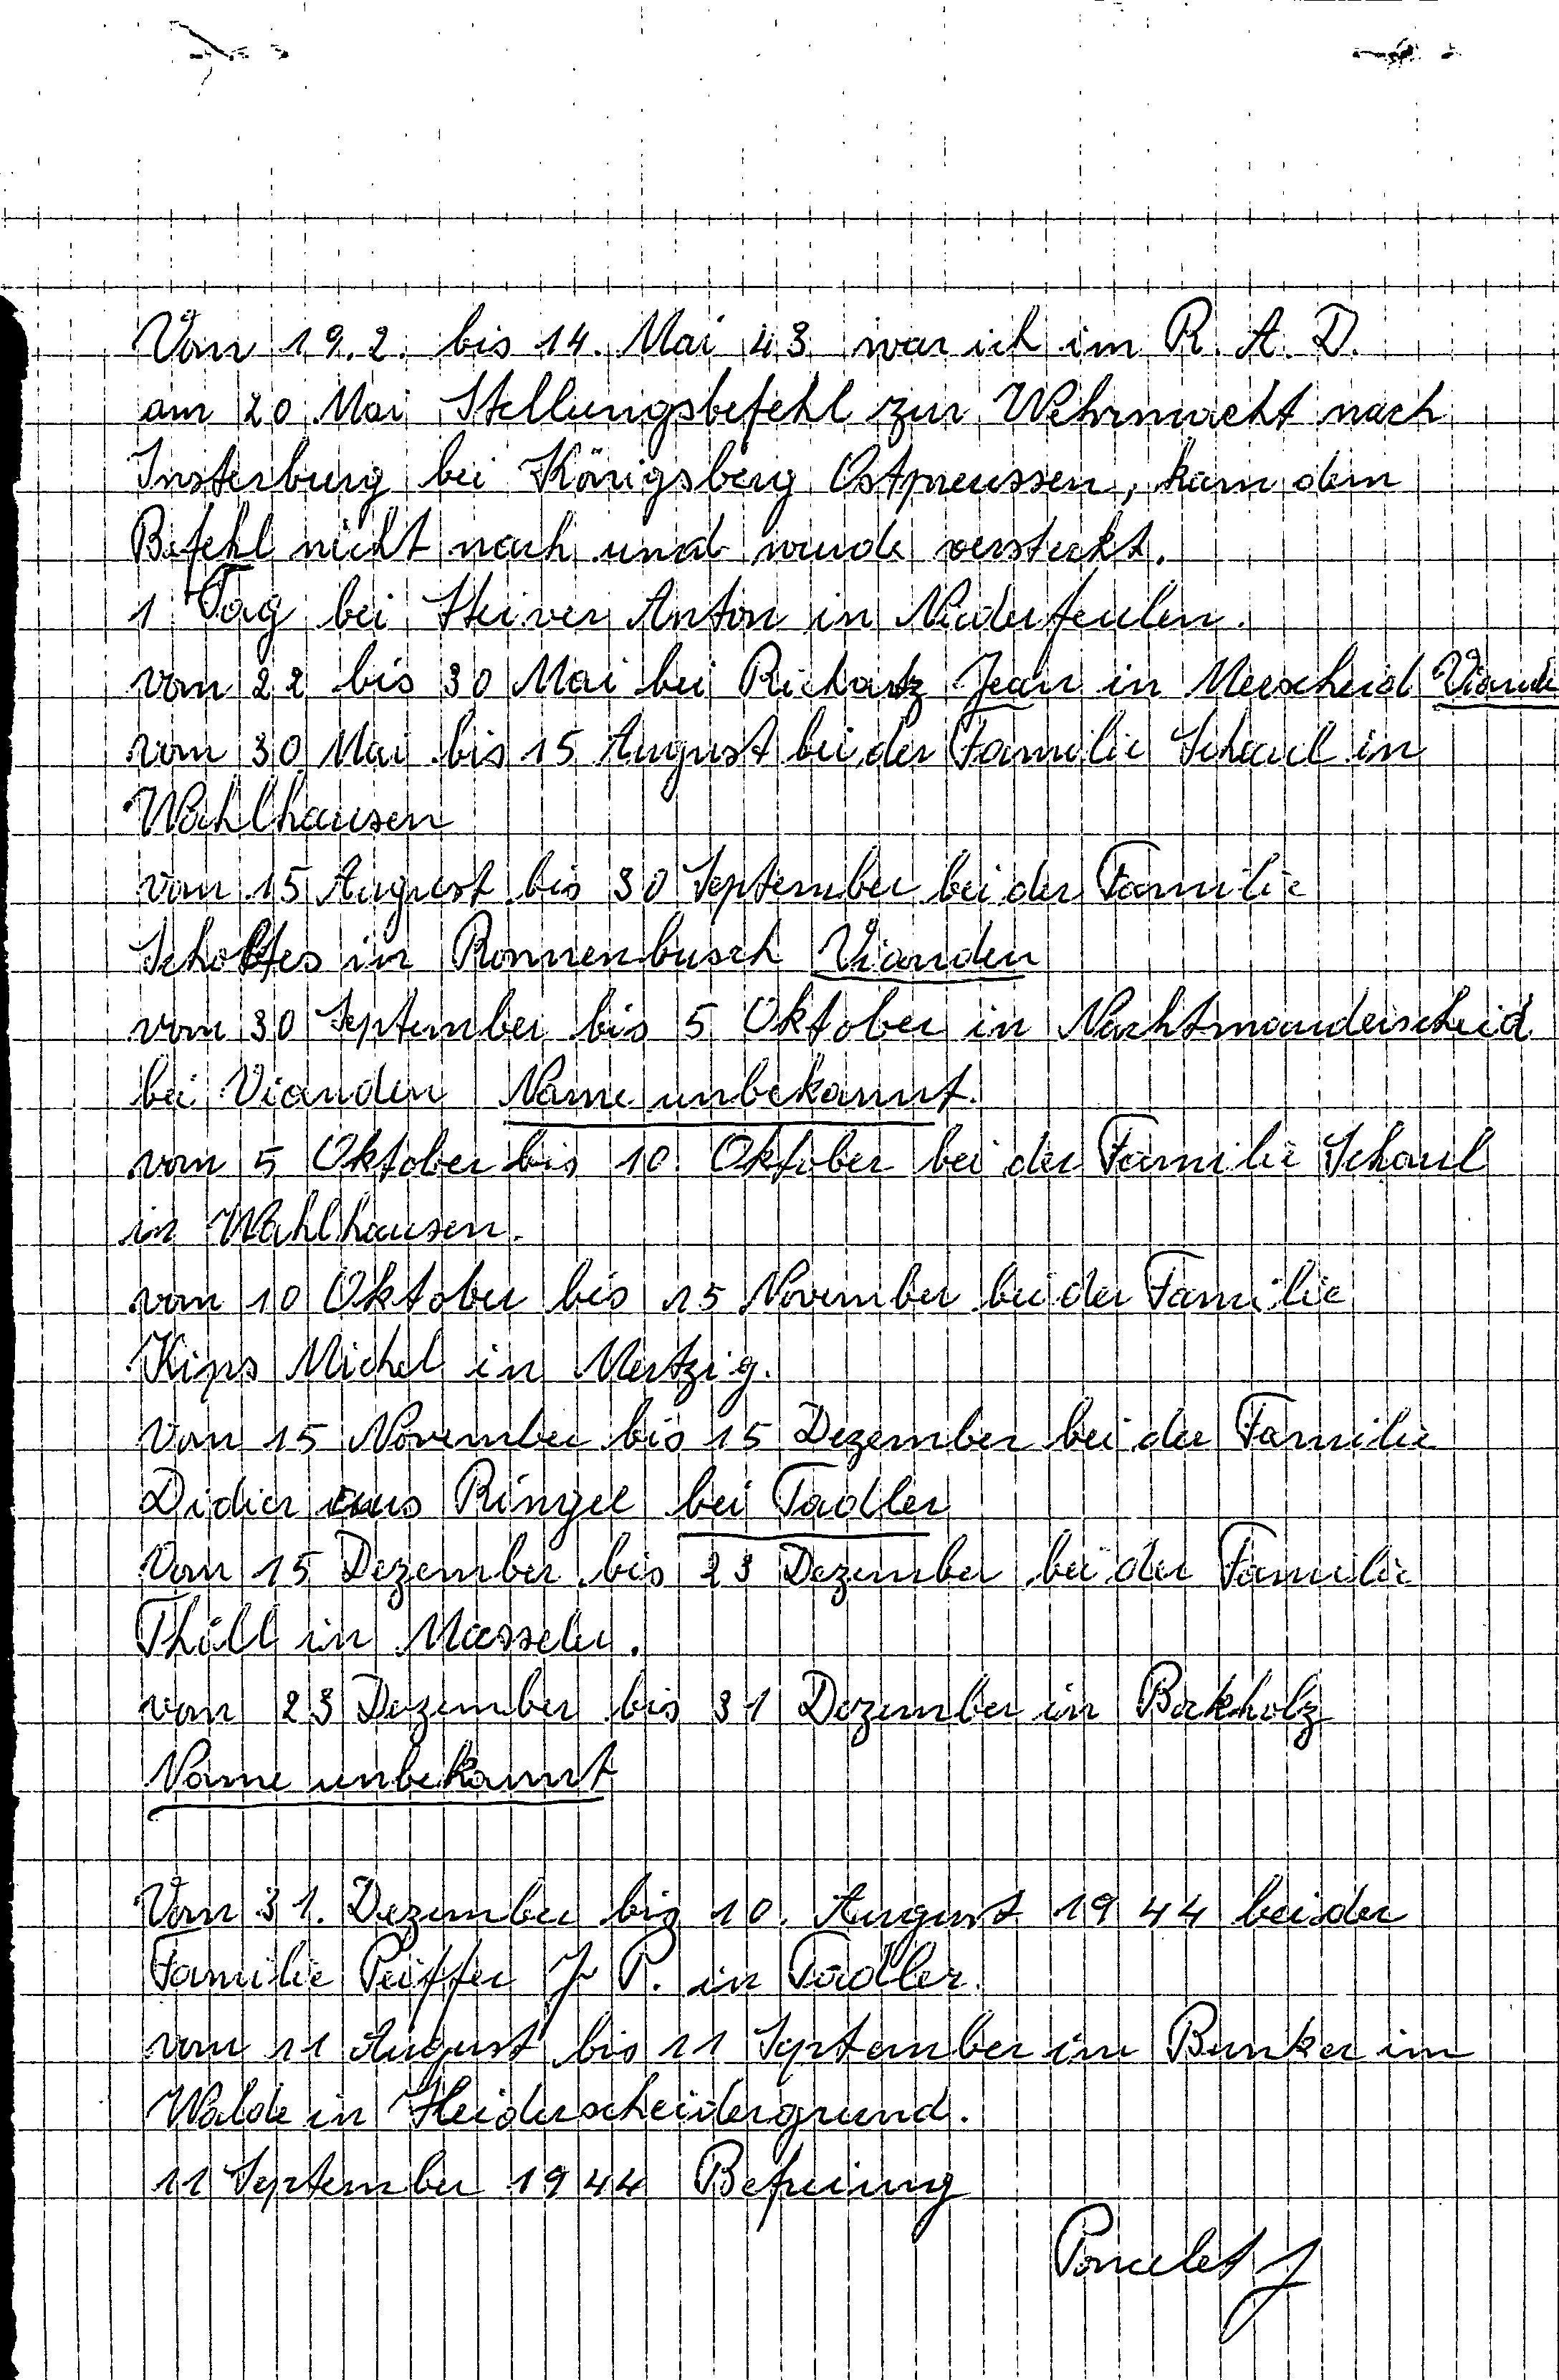 Vom 19.2. bis 14. Mai 43 war ich im R. A. D.
am 20 Mai Stellungsbefehl zur Wehrmacht nach
Insterburg bei Königsberg Ostpreussen, kam dem
Befehl nicht nach und wurde versteckt.
1 Tag bei Steiver Anton in Niederfeulen.
vom 22 bis 30 Mai bei Richartz Jean in Merscheid Viande
vom 30 Mai bis 15 August bei der Familie Schaul in
Wahlhausen
vom 15 August bis 30 September bei der Familie
Scholtes in Ronnenbusch Vianden
vom 30 September bis 5 Oktober in Nachtmanderscheid
bei Vianden Name unbekannt.
vom 5 Oktober bis 10. Oktober bei der Familie Schaul
in Wahlhausen.
vom 10 Oktober bis 15 November bei der Familie
Kips Michel in Mertzig.
Vom 15 November bis 15 Dezember bei der Familie
Didier aus Ringel bei Tadler
Vom 15 Dezember bis 23 Dezember bei der Familie
Thill in Masseler.
vom 23 Dezember bis 31 Dezember in Bockholz
Name unbekannt
Vom 31. Dezember bis 10. August 1944 bei der
Familie Peiffer J. P. in Tadler.
vom 11 August bis 11 September im Bunker im
Walde in Heiderscheidergrund.
11 September 1944 Befreiung
Poncelet J